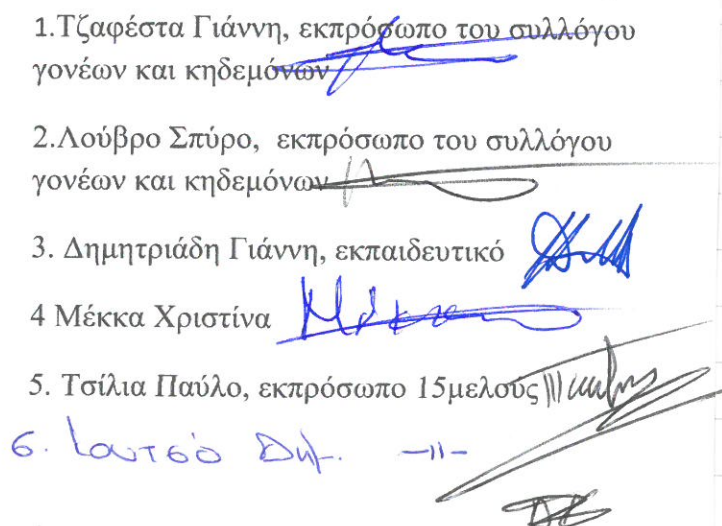 1.Τζαφέστα Γιάννη, εκπρόσωπο του συλλόγου
γονέων και κηδεμόνων
2.Λούβρο Σπύρο, εκπρόσωπο του συλλόγου
γονέων και κηδεμόνων
3. Δημητριάδη Γιάννη, εκπαιδευτικό
4 Μέκκα Χριστίνα
5. Τσίλια Παύλο, εκπρόσωπο 15μελούς
6. Δημ. -||-